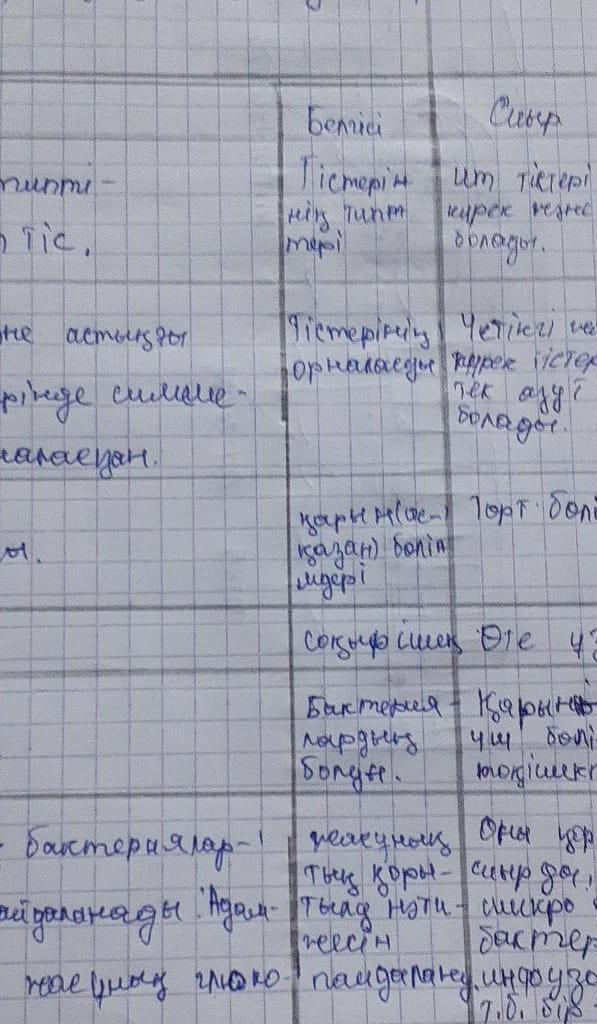 Белгісі
Сиыр
типті-
тіс.
Тістерін
нің типт
тері
ит тістері
күрек
болады.
не астыңғы
рінде симме-
наласқан.
Тістерінің
орналасуы
Четінгі
күрек тістер
тек азу т
болады.
ы.
қарын(ас-
қазан) бөлім
мдері
Төрт бөлі
соқырішек
Өте ұз
Бактерия-
лардың
болуы.
Қарынн
үш бөлі
тоқішек
бактериялар-
айдаланады. Адам-
жасұның глюко-
жасұның
тың қоры-
тылд нәти-
жесін
пайдалану.
Оны қор
сиыр да,
микро
бактер
инфузо
т.б. бір